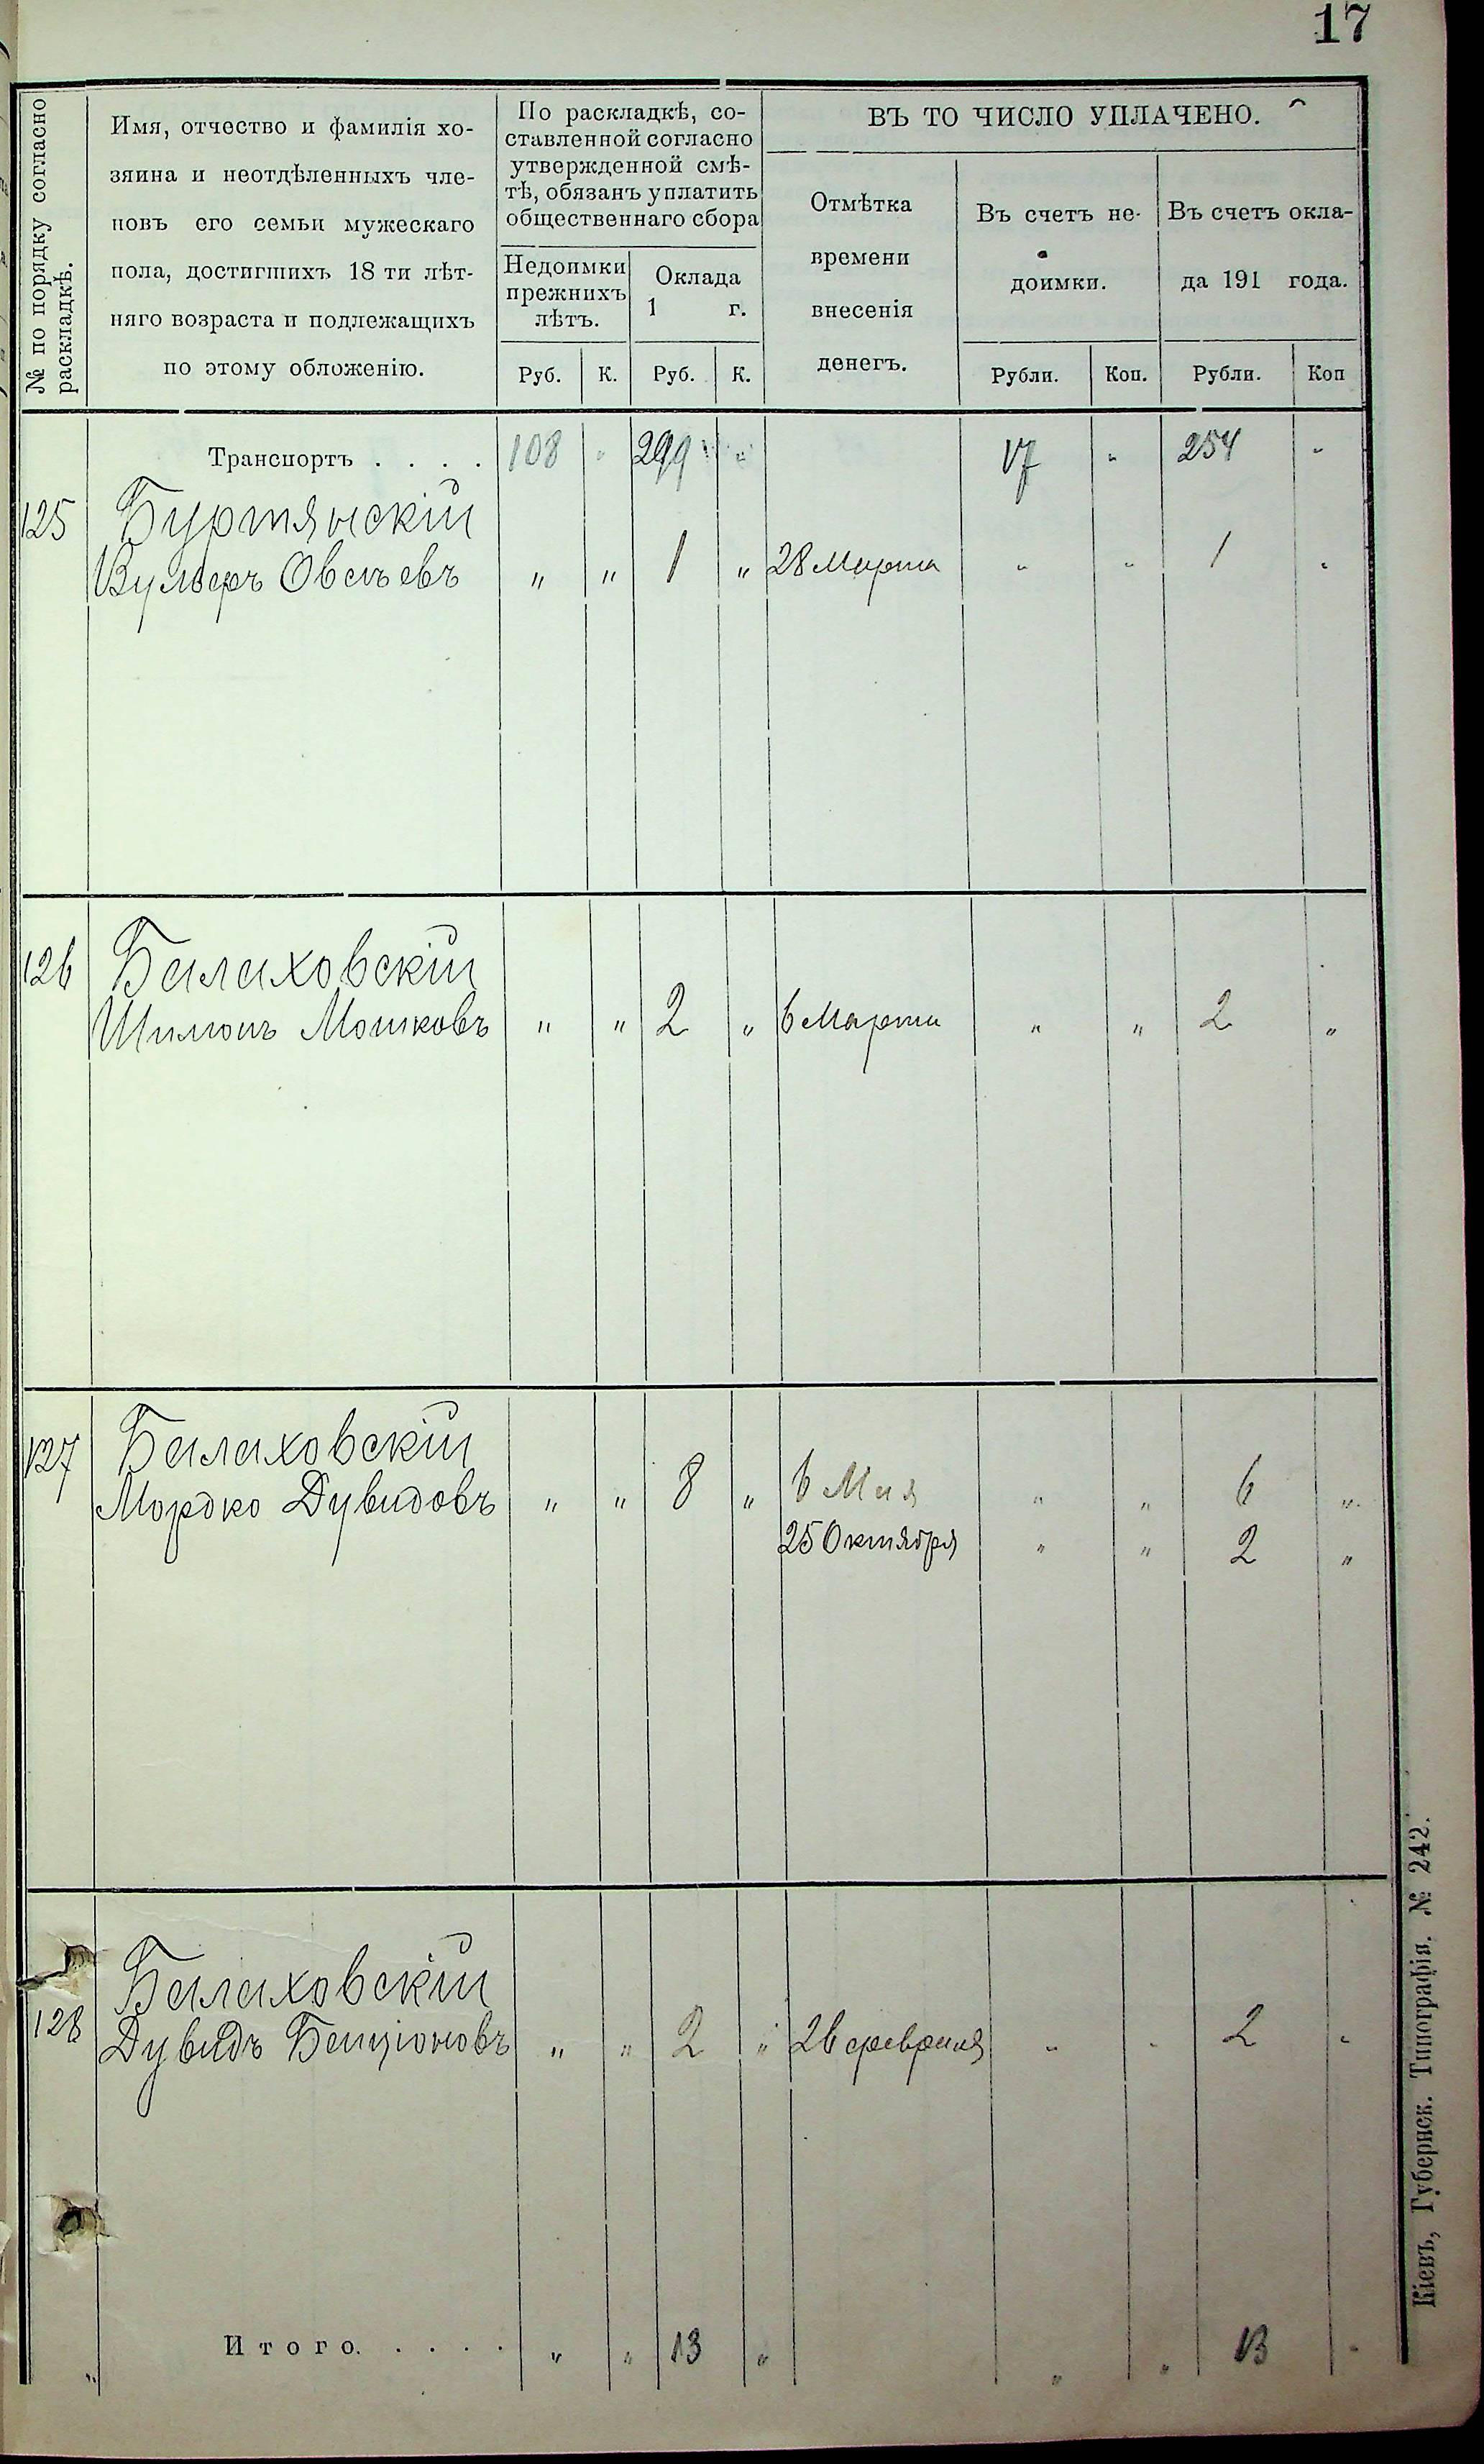 17
№ по порядку согласно
раскладкѣ.
Имя, отчество и фамилія хо-
зяина и неотдѣленныхъ чле-
новъ его семьи мужескаго
пола, достигшихъ 18 ти лѣт-
няго возраста и подлежащихъ
по этому обложенію.
По раскладкѣ, со-
ставленной согласно
утвержденной смѣ-
тѣ, обязанъ уплатить
общественнаго сбора
Недоимки
прежнихъ
лѣтъ.
Оклада
1 г.
Руб. К. Руб. К.
ВЪ ТО ЧИСЛО УПЛАЧЕНО.
Отмѣтка
времени
внесенія
денегъ.
Въ счетъ не-
доимки.
Въ счетъ окла-
да 191 года.
Рубли. Коп. Рубли. Коп
Транспортъ . . . . 108 " 299 " 17 " 254 "
125 Буртянскій
Вульфъ Овсѣевъ " " 1 " 28 Марта " " 1 "
126 Балаховскій
Шимонъ Мошковъ " " 2 " 6 Марта " " 2 "
127 Балаховскій
Мордко Дувидовъ " " 8 " 6 Мая " " 6 "
25 Октября " " 2 "
Балаховскій
128 Дувидъ Бенціоновъ " " 2 " 26 февраля " " 2 "
Итого. . . . . " " 13 " " " 13 "
Кіевъ, Губернск. Типографія. № 242.